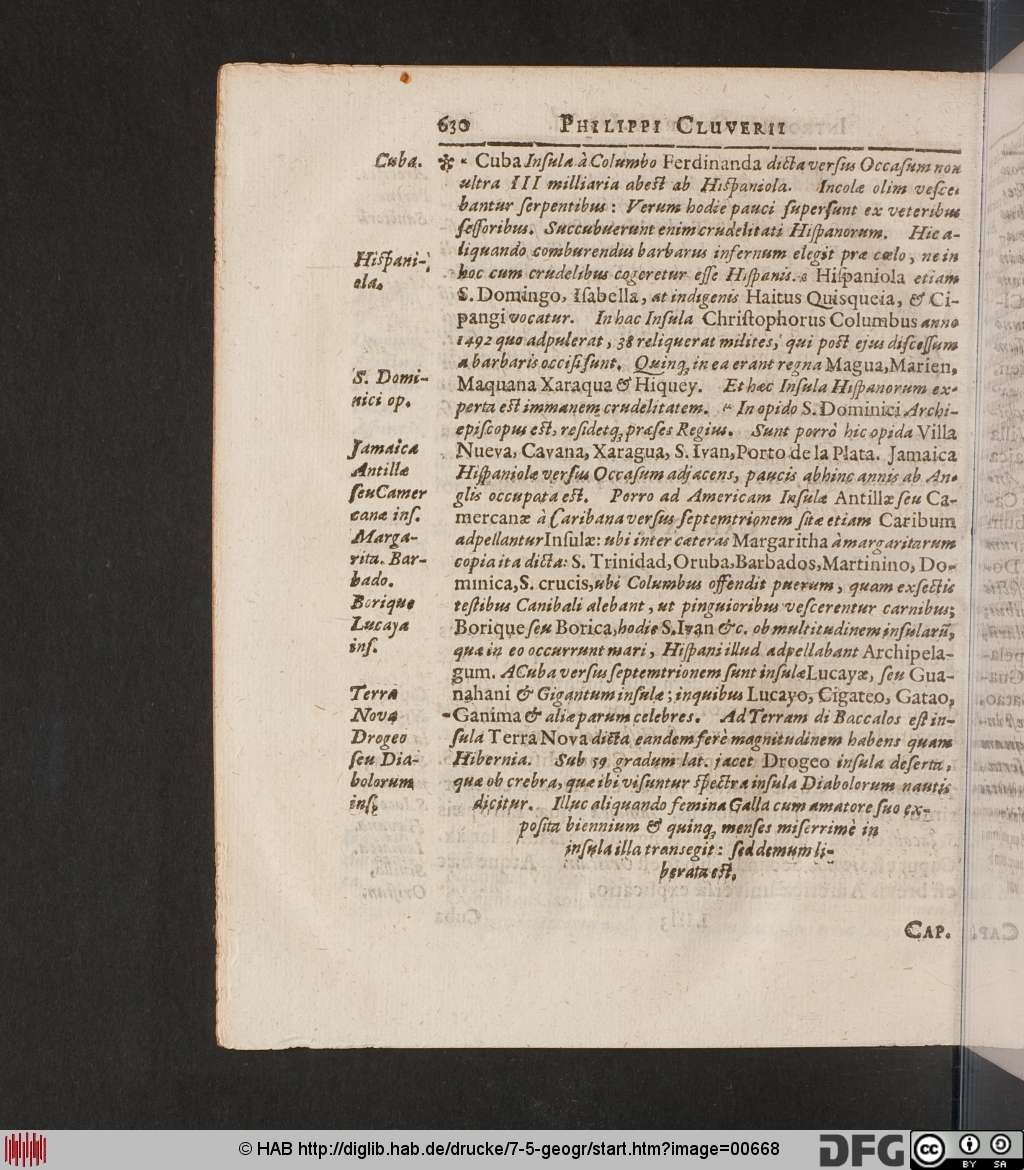 630 PHILIPPI CLUVERII
Cuba.
✻ " Cuba Insula à Columbo Ferdinanda dicta versus Occasum non
ultra III milliaria abest ab Hispaniola. Incolæ olim vesce-
bantur serpentibus: Verum hodie pauci supersunt ex veteribus
sessoribus. Succubuerunt enim crudelitati Hispanorum. Hic a-
liquando comburendus barbarus infernum elegit præ cœlo, ne in
Hispani-
hoc cum crudelibus cogeretur esse Hispanis. Hispaniola etiam
ola.
S. Domingo, Isabella, at indigenis Haitus Quisqueia, & Ci-
pangi vocatur. In hac Insula Christophorus Columbus anno
1492 quo adpulerat, 38 reliquerat milites, qui post ejus discessum
a barbaris occisi sunt. Quinq; in ea erant regna Magua, Marien,
S. Domi-
Maquana Xaraqua & Hiquey. Et hæc Insula Hispanorum ex-
nici op.
perta est immanem crudelitatem. " In opido S. Dominici Archi-
episcopus est, residetq; præses Regius. Sunt porrò hic opida Villa
Jamaica
Nueva, Cavana, Xaragua, S. Ivan, Porto de la Plata. Jamaica
Antillæ
Hispaniolæ versus Occasum adjacens, paucis abhinc annis ab An-
seu Camer
glis occupata est. Porro ad Americam Insulæ Antillæ seu Ca-
canæ ins.
mercanæ à Caribana versus septemtrionem sitæ etiam Caribum
Marga-
adpellantur Insulæ: ubi inter cateras Margaritha à margaritarum
rita. Bar-
copia ita dicta: S. Trinidad, Oruba, Barbados, Martinino, Do-
bado.
minica, S. crucis, ubi Columbus offendit puerum, quam exsectis
Borique
testibus Canibali alebant, ut pinguioribus vescerentur carnibus;
Lucaya
Borique seu Borica, hodie S. Ivan &c. ob multitudinem insularũ,
ins.
quæ in eo occurrunt mari, Hispani illud adpellabant Archipela-
gum. A Cuba versus septemtrionem sunt insulæ Lucayæ, seu Gua-
Terra
nahani & Gigantum insulæ; inquibus Lucayo, Cigateo, Gatao,
Nova
Ganima & aliæ parum celebres. Ad Terram di Baccalos est in-
Drogeo
sula Terra Nova dicta, eandem ferè magnitudinem habens quam
seu Dia-
Hibernia. Sub 59 gradum lat. jacet Drogeo insula deserta,
bolorum
quæ ob crebra, quæ ibi visuntur spectra insula Diabolorum nautis
ins.
dicitur. Illuc aliquando femina Galla cum amatore suo ex-
posita biennium & quinq; menses miserrimè in
insula illa transegit: sed demum li-
berata est.
CAP.
© HAB http://diglib.hab.de/drucke/7-5-geogr/start.htm?image=00668
DFG
cc BY SA